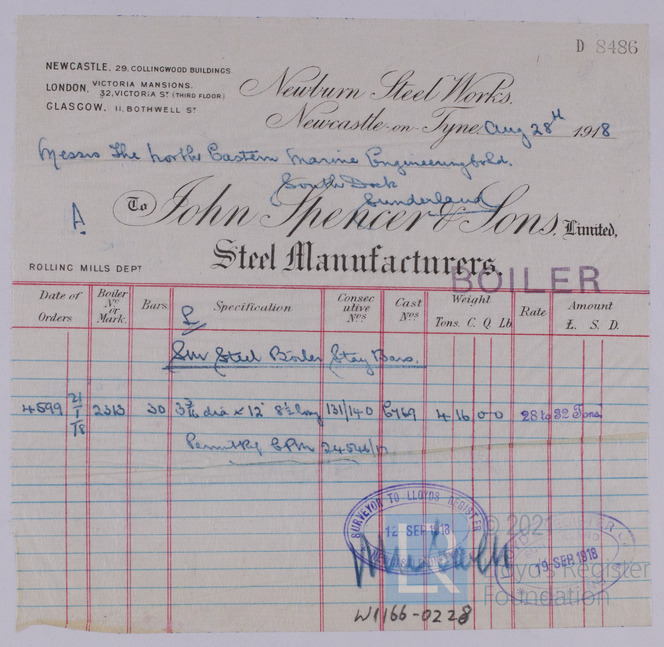 D 8486
NEWCASTLE, 29, COLLINGWOOD BUILDINGS
LONDON, VICTORIA MANSIONS, 32, VICTORIA ST (THIRD FLOOR)
GLASGOW, 11, BOTHWELL ST
Newburn Steel Works,
Newcastle-on-Tyne, Aug 28th 1918
Messrs The North Eastern Marine Engineering Co Ld.
South Dock
Sunderland
To John Spencer & Sons, Limited,
Steel Manufacturers.
ROLLING MILLS DEPT
BOILER
Date of Orders Boiler No or Mark. Bars Specification Consecutive Nos Cast Nos Weight Tons. C. Q. Lb. Rate Amount £. S. D.
Steel Boiler Stay Bars.
4599 21/1/18 2313 dia x 12' 8½ long 131/140 4 16 0 0 28 to 32 Tons
SURVEYOR TO LLOYDS REGISTER
12 SEP 1918
19 SEP 1918
LR
© 2021
Lloyds Register
Foundation
W1166-0228